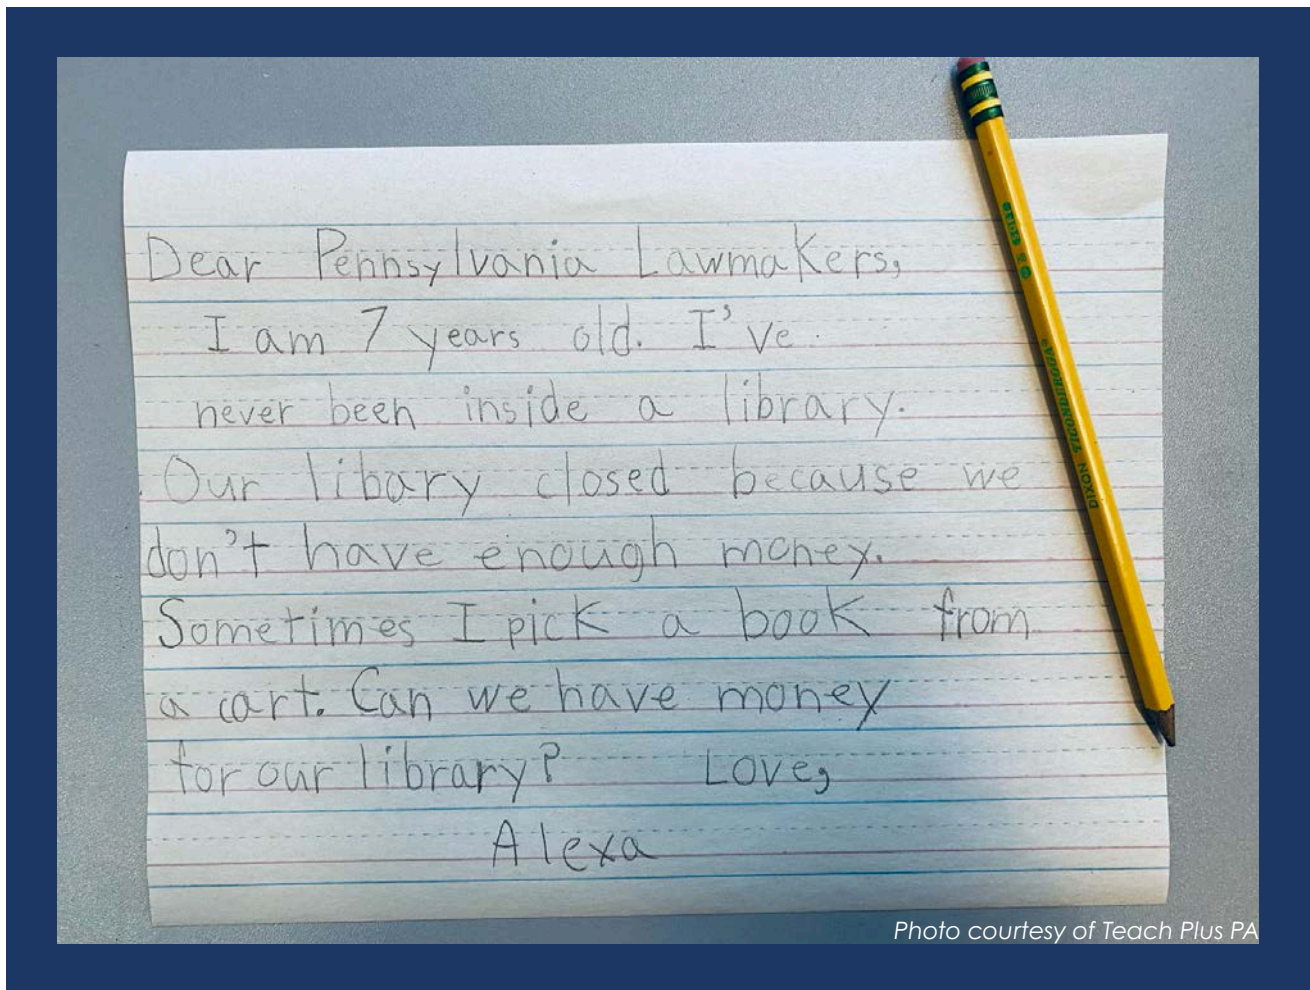 Dear Pennsylvania Lawmakers,
I am 7 years old. I've
never been inside a library.
Our libary closed because we
don't have enough money.
Sometimes I pick a book from
a cart. Can we have money
for our library? Love,
Alexa
DIXON TICONDEROGA®
Photo courtesy of Teach Plus PA